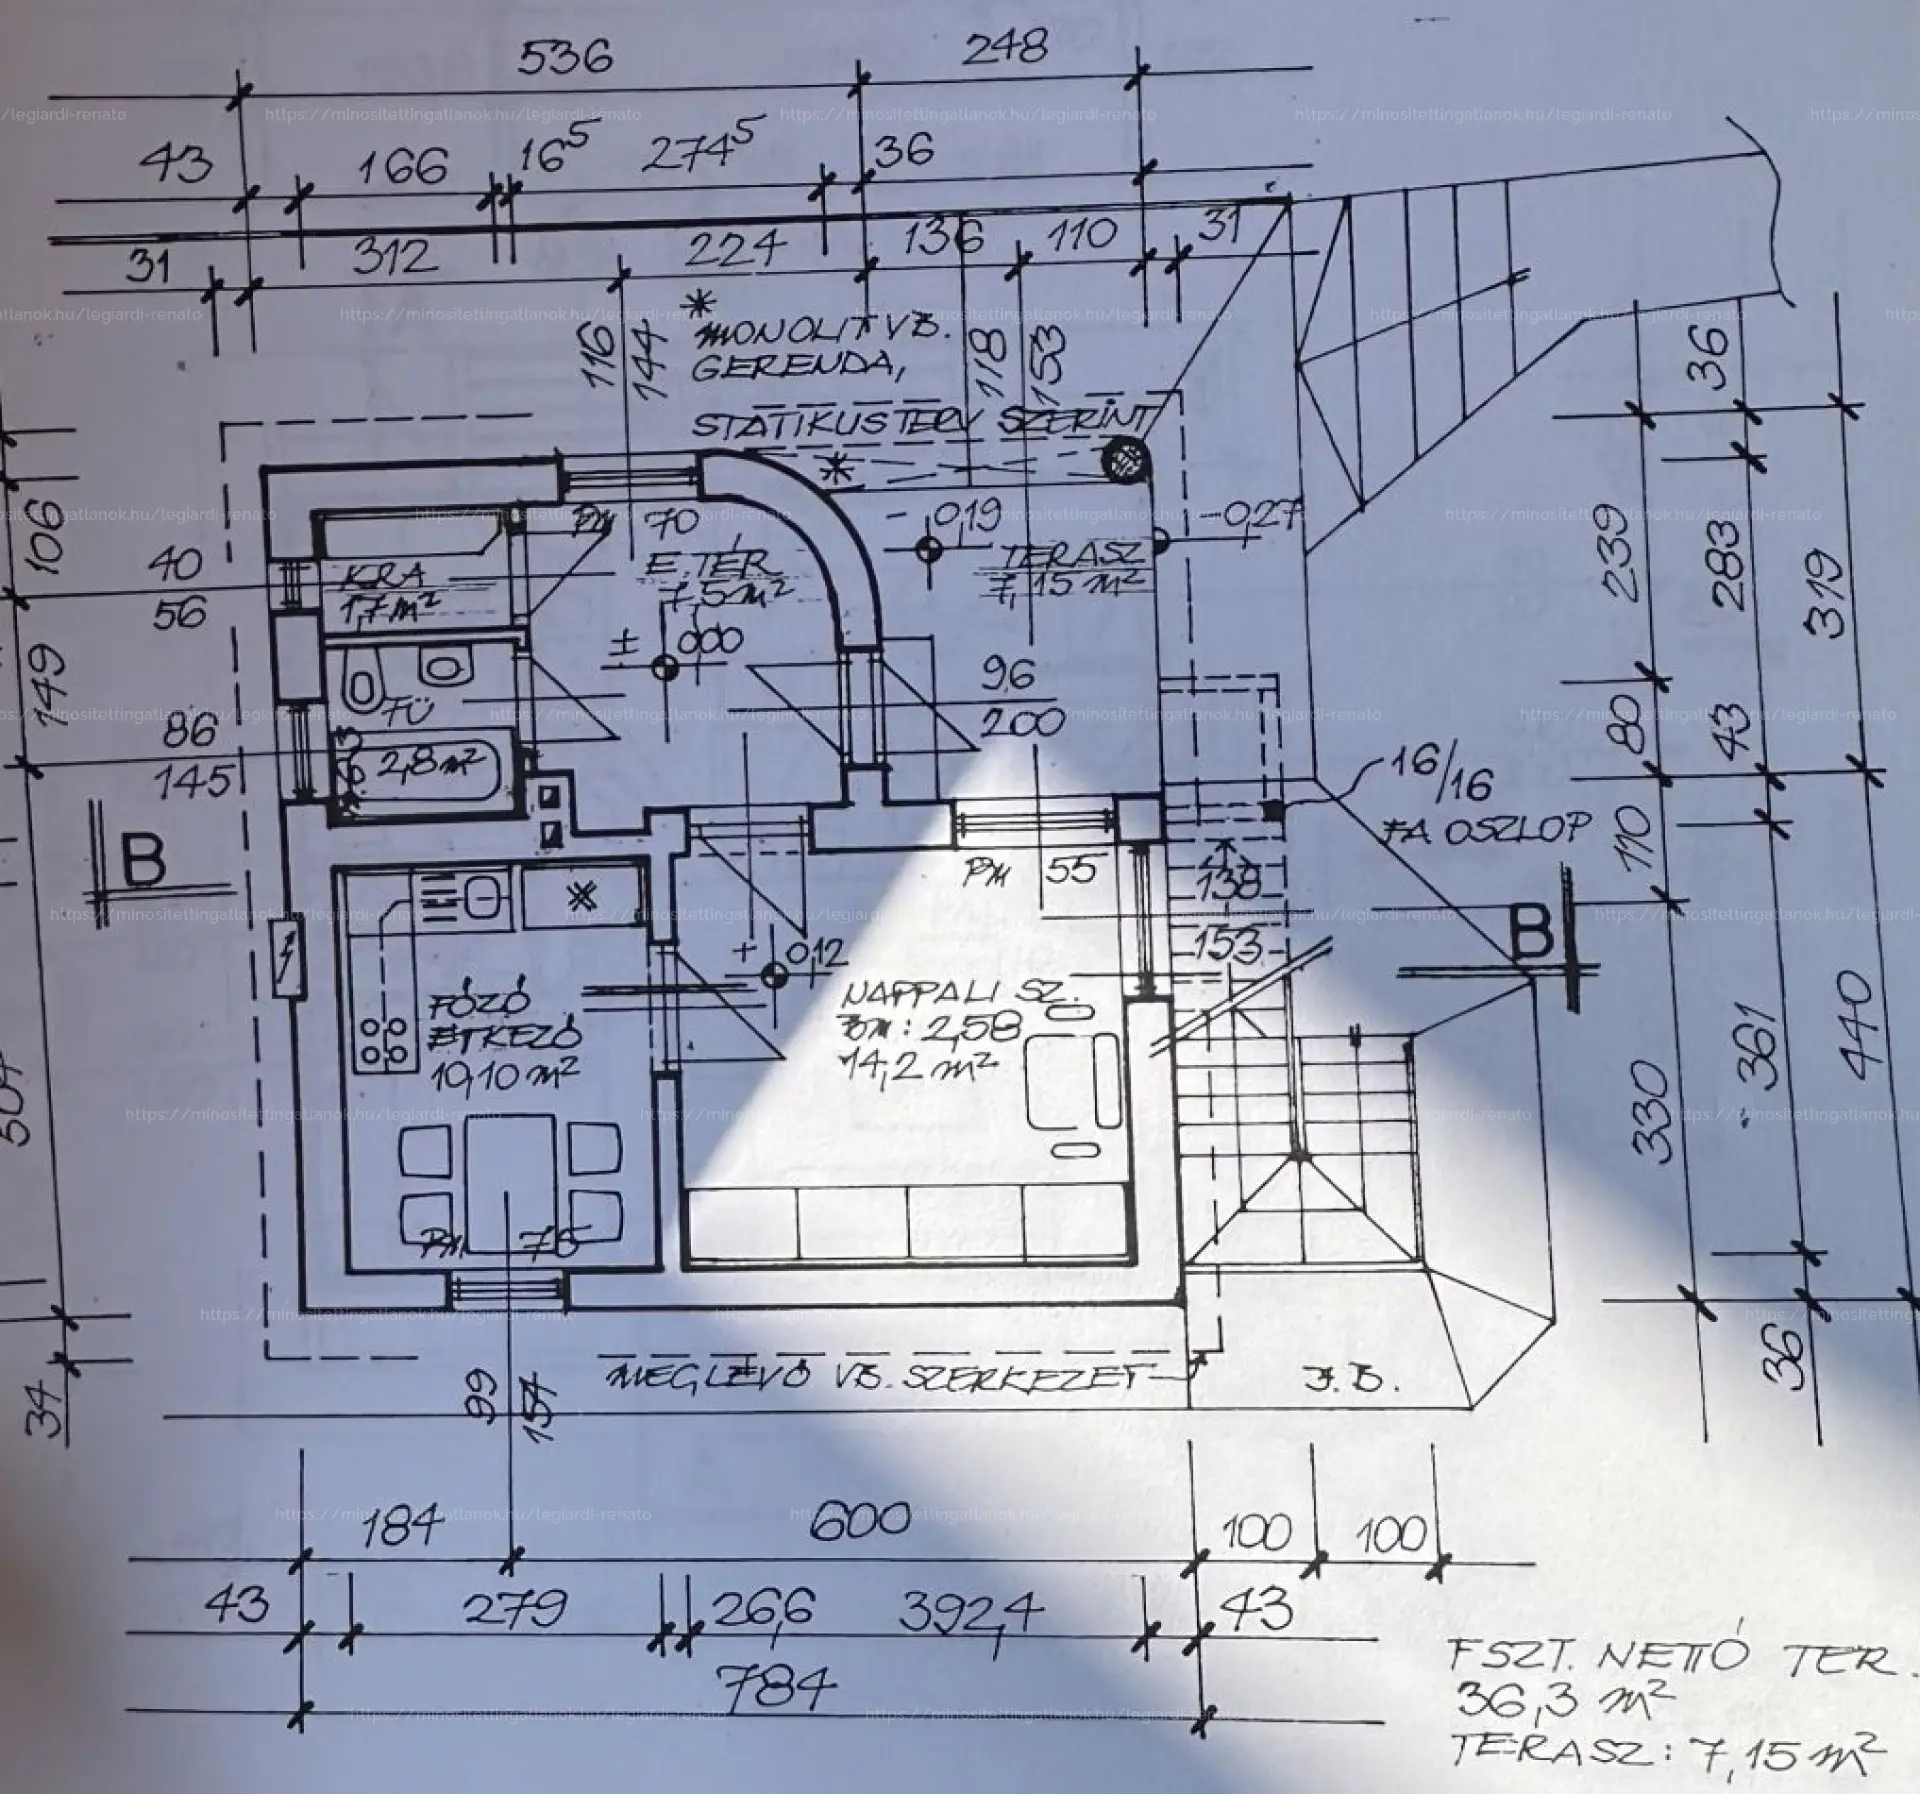 536 248
43 166 16⁵ 274⁵ 36
31 312 224 136 110 31
116 144 118 153
* MONOLIT VB.
GERENDA,
STATIKUSTERV SZERINT
*
36
106 40
56
149 86
145
PM 70
E. TÉR
7,5 m²
± 0,00
KRA
1,7 m²
FÜ
2,8 m²
- 0,19
TERASZ
7,15 m²
- 0,27
96
200
239 283 319
80 43
110
16/16
FA OSZLOP
B
B
PM 55
138
153
+ 0,12
FŐZŐ
ÉTKEZŐ
10,10 m²
NAPPALI SZ.
BM: 2,58
14,2 m²
330 361 440
PM 75
MEGLÉVŐ VB. SZERKEZET
99
154
34
36
184 600 100 100
43 279 26,6 392,4 43
784
FSZT. NETTÓ TER.
36,3 m²
TERASZ: 7,15 m²
https://minositettingatlanok.hu/legiardi-renato